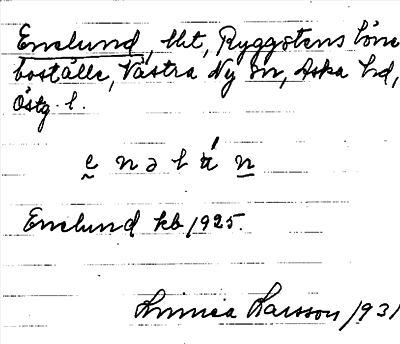 Enelund, lht, Ryggstens löne
boställe, Västra Ny sn, Aska hd,
Östg l.
e n ə l ú n
Enelund kb 1925.
Linnea Larsson 1931